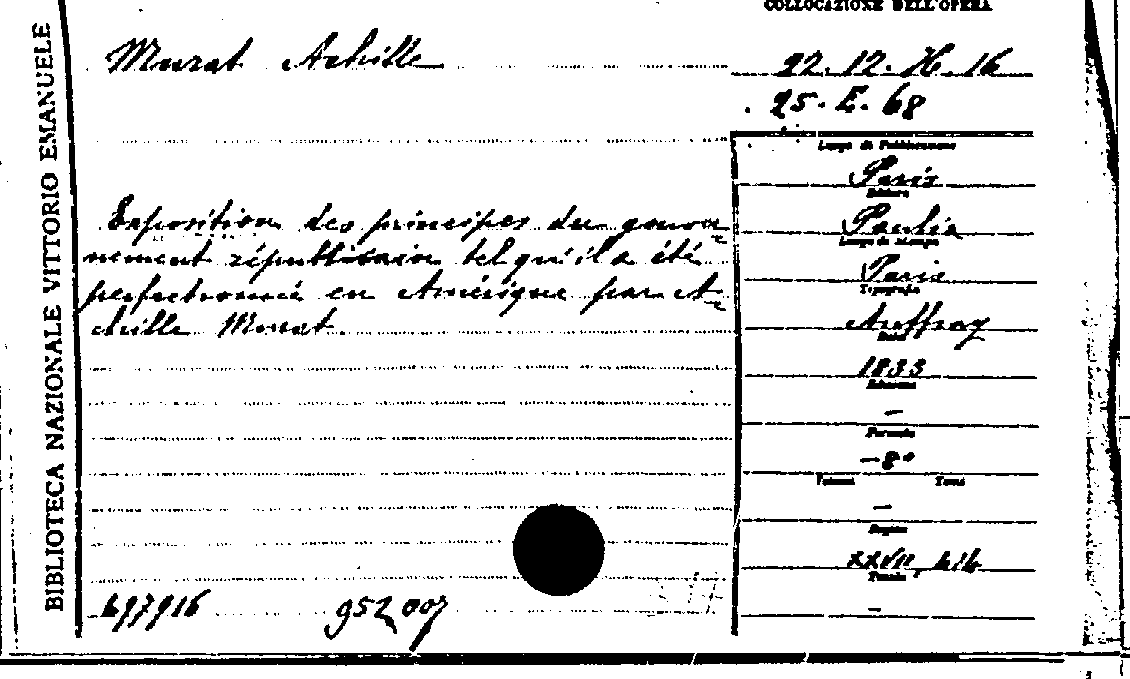 COLLOCAZIONE DELL'OPERA
BIBLIOTECA NAZIONALE VITTORIO EMANUELE
Murat Achille
22.12.H.16
25.E.68
Luogo di Pubblicazione
Paris
Editore
Paulin
Luogo di stampa
Paris
Tipografia
Auffray
Data
1833
Edizione
—
Formato
-8°
Volumi Tomi
—
Pagine
XXVII, 414
Tavole
—
Exposition des principes du gouver=
nement républicain tel qu'il a été
perfectionné en Amérique par A=
chille Murat.
697916 952007